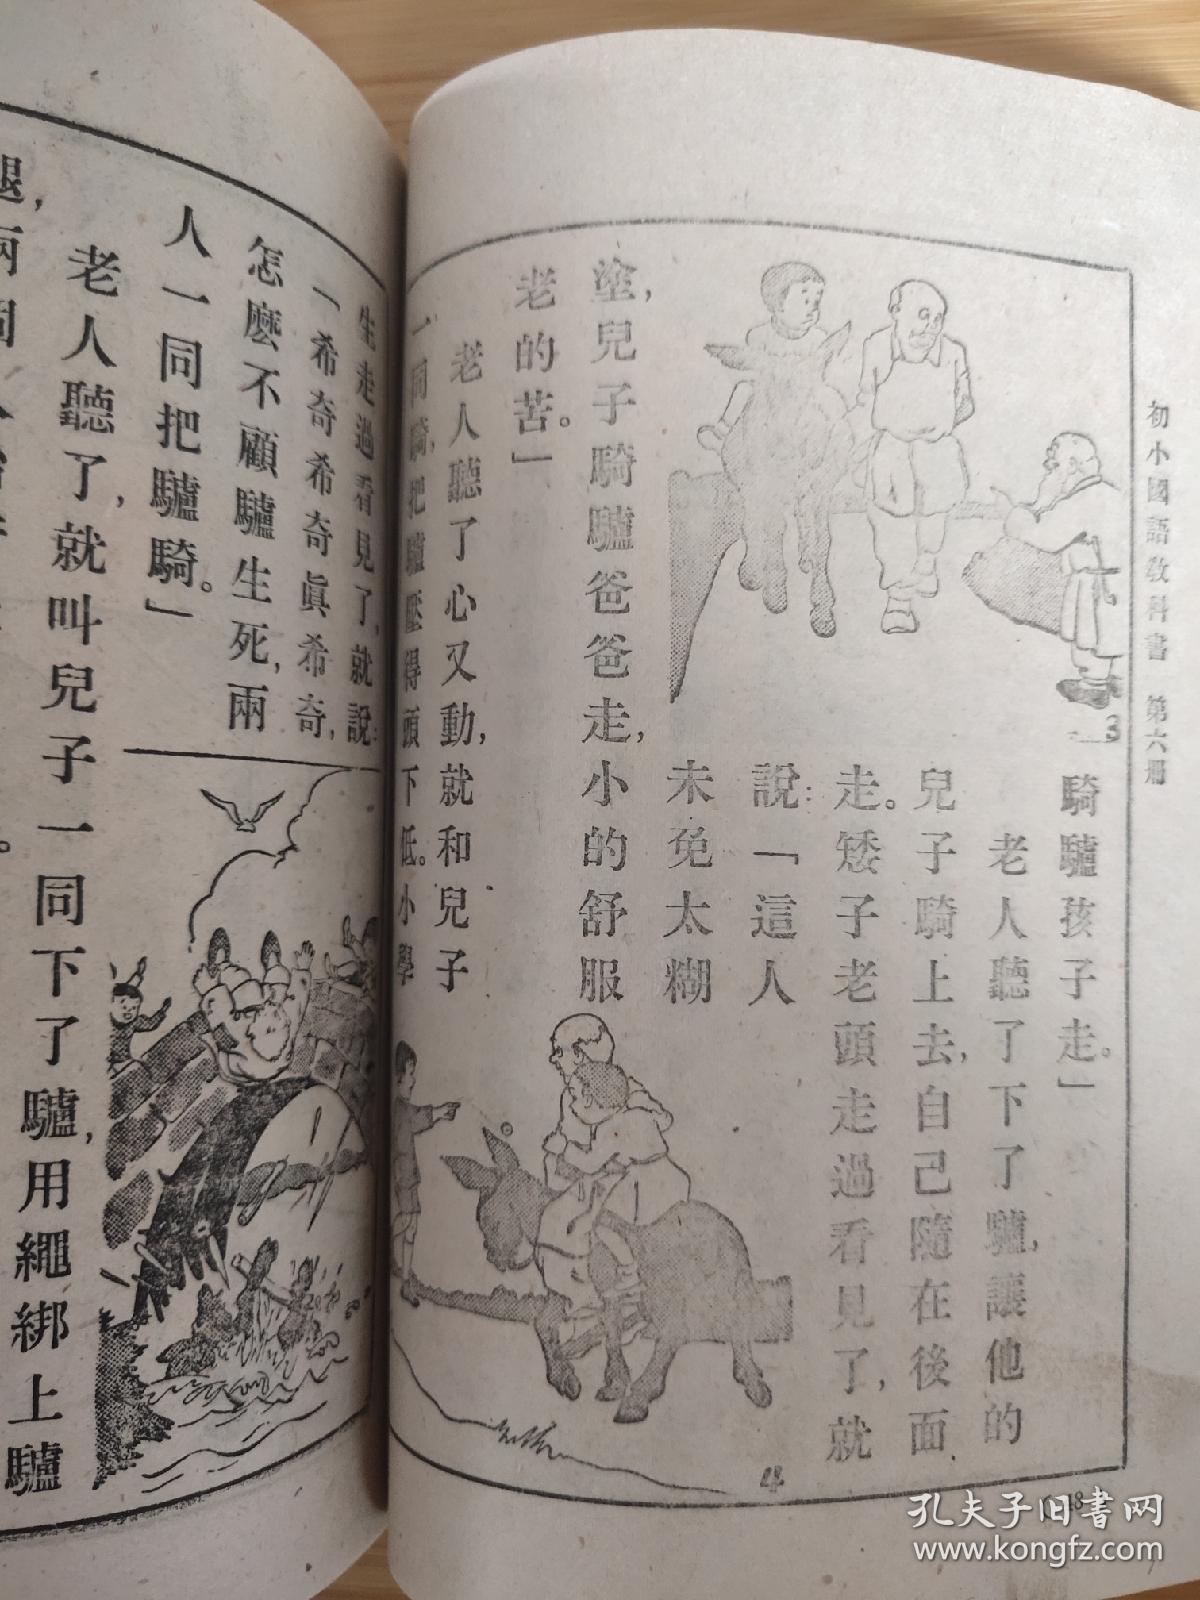 初小國語教科書 第六册
騎驢孩子走。」
老人聽了下了驢,讓他的
兒子騎上去,自己隨在後面
走。矮子老頭走過看見了,就
說:「這人
未免太糊
塗,兒子騎驢爸爸走,小的舒服
老的苦。」
老人聽了心又動,就和兒子
一同騎,把驢壓得頭下低。小學
3
4
48
生走過看見了,就說:
「希奇希奇眞希奇,
怎麽不顧驢生死,兩
人一同把驢騎。」
老人聽了,就叫兒子一同下了驢,用繩綁上驢
腿,兩個
孔夫子旧书网
www.kongfz.com